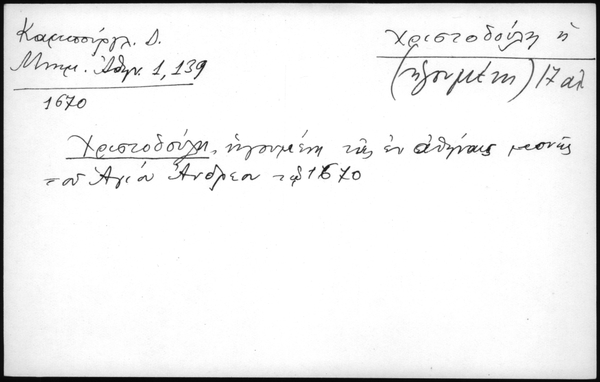 Καμπούργλ. Δ.
Μνημ. Αθην. 1, 139
1670
Χριστοδούλη ἡ
(ἡγουμένη) 17 αἰ
Χριστοδούλη, ἡγουμένη τῆς ἐν Ἀθήναις μονῆς
τοῦ Ἁγίου Ἀνδρέου τῷ 1670